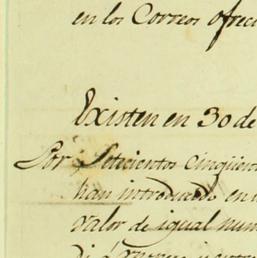 en los Correos ofreci
Existen en 30 de
Por Setecientos cinquent
han introducido en
valor de igual num